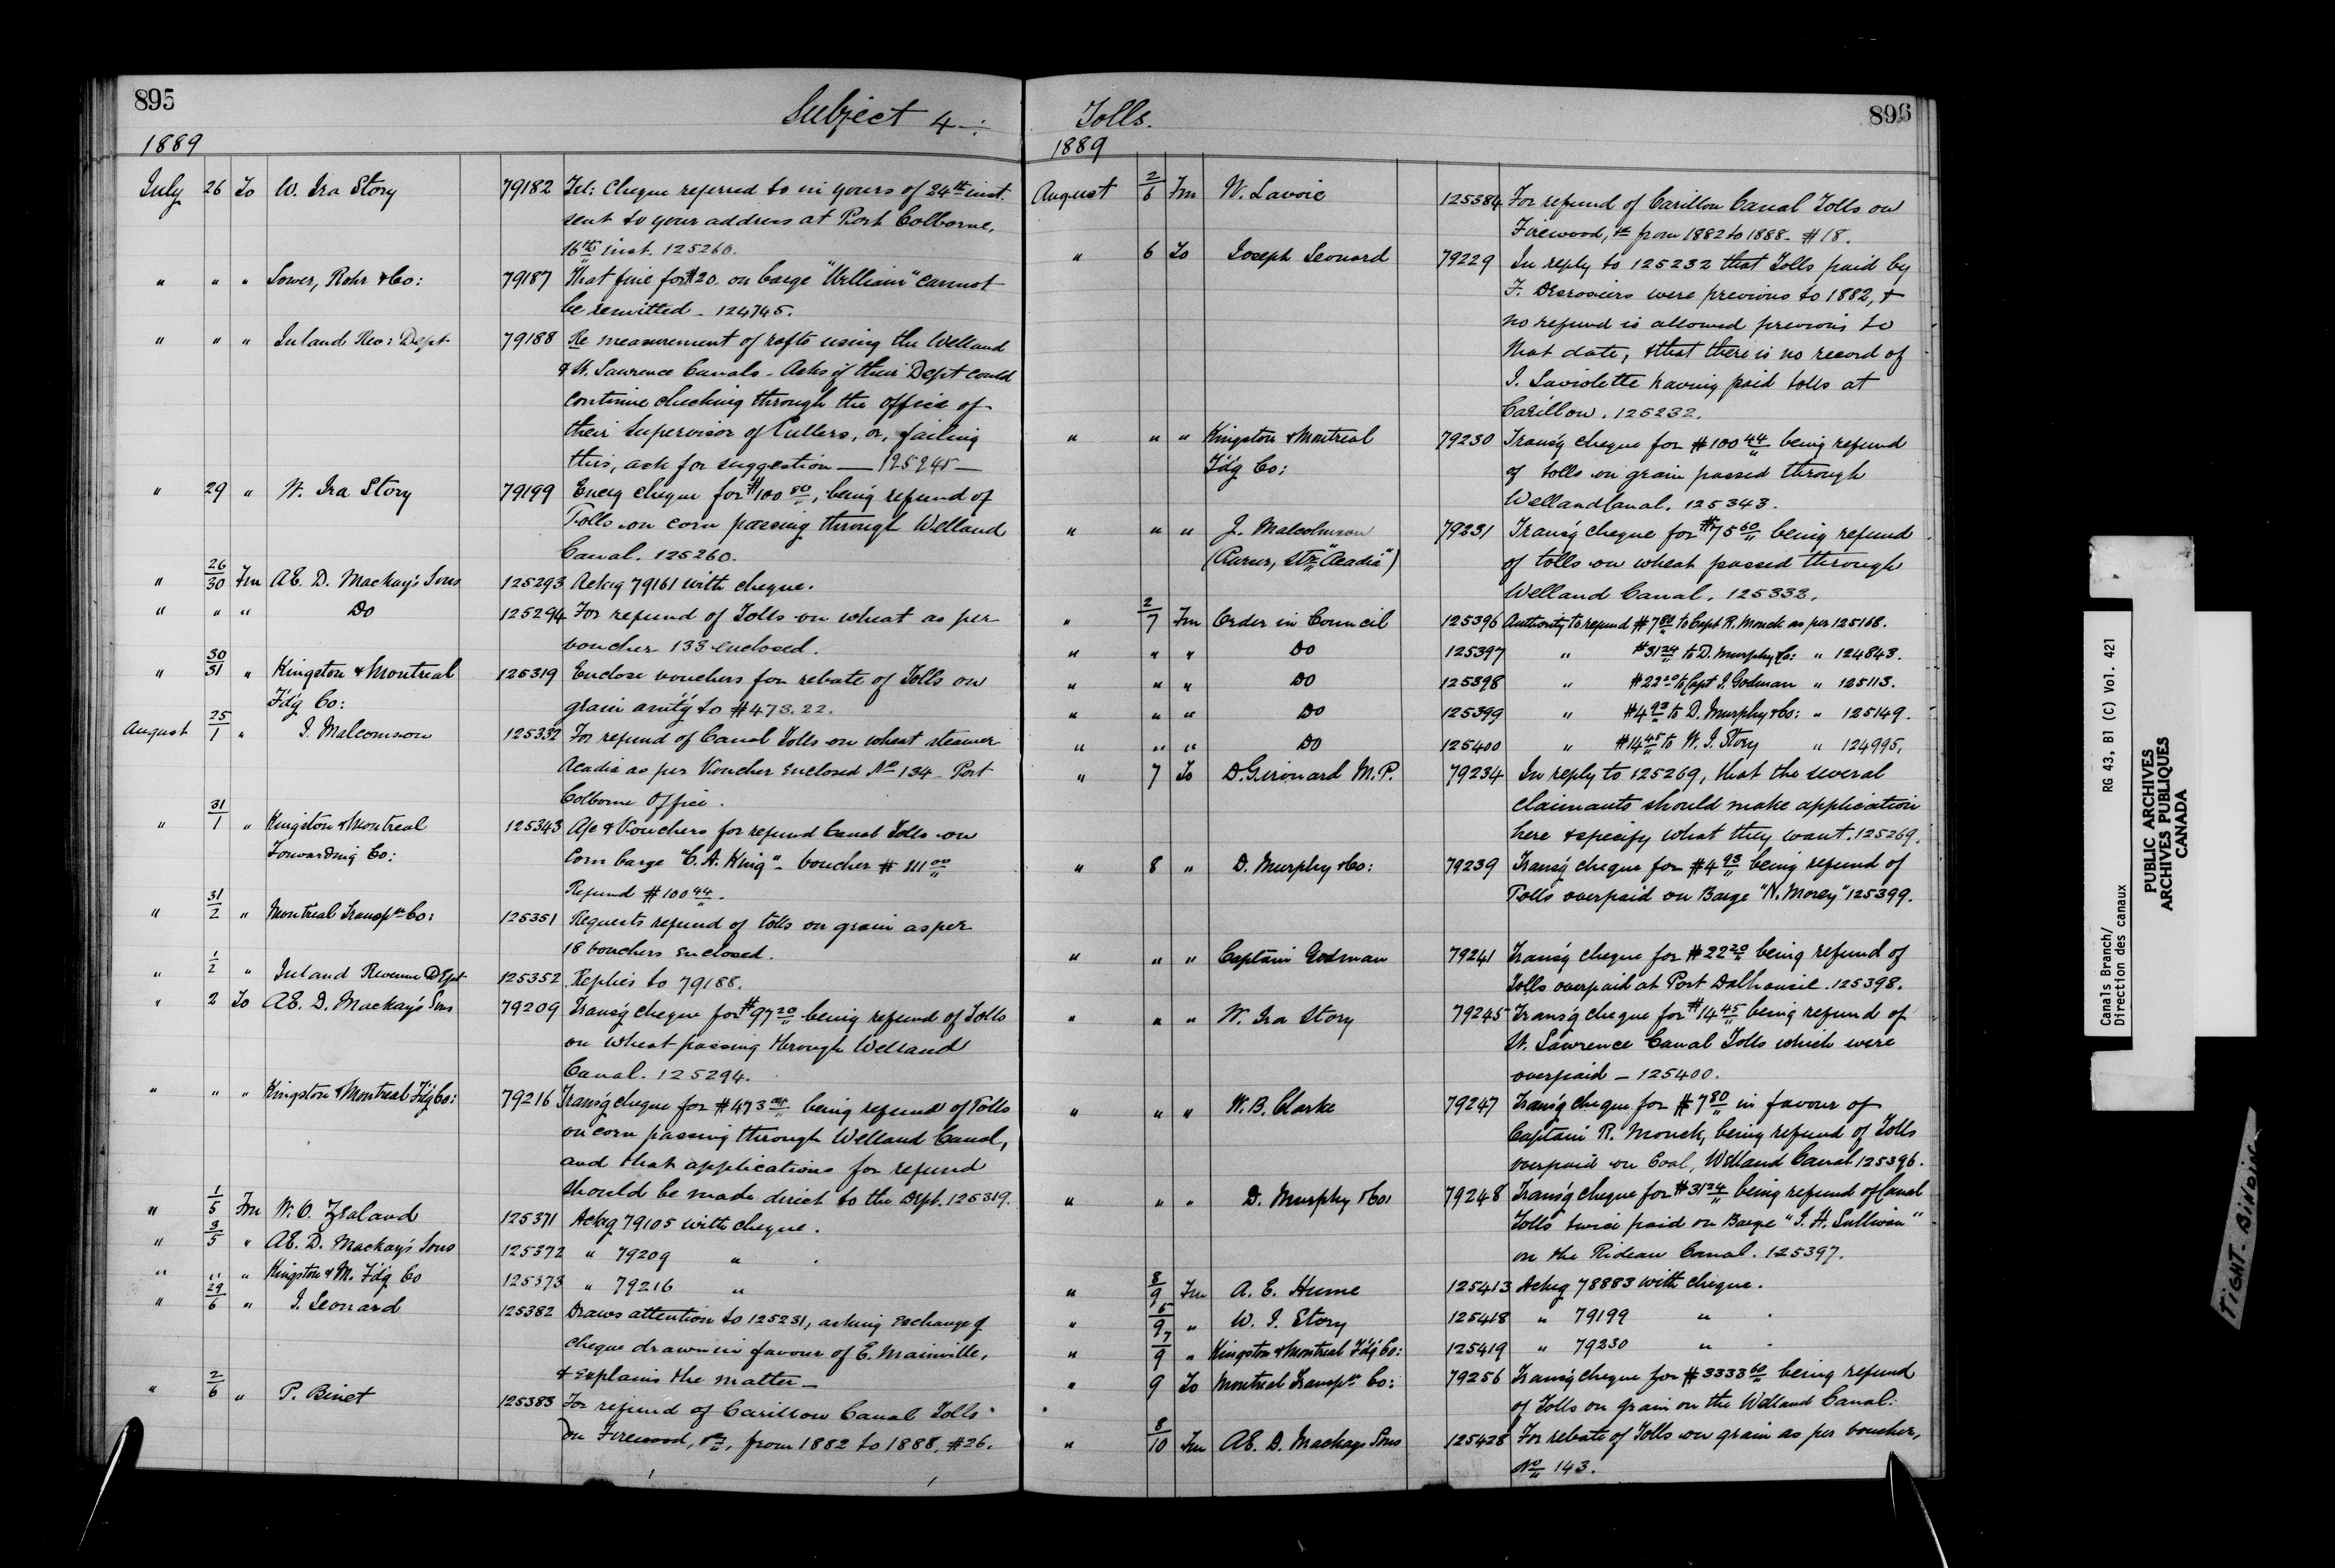 895
Subject 4 -:
1889
July 26 To W. Ira Story 79182 Tel: Cheque referred to in yours of 24th inst.
sent to your address at Port Colborne,
16th inst. 125260.
" " " Sower, Rohr & Co: 79187 That fine for $20. on barge "William" cannot
be remitted - 124745.
" " " Inland Rev: Dept 79188 Re measurement of rafts using the Welland
& St. Lawrence Canals - Asks if their Dept could
continue checking through the office of
their Supervisor of Cullers, or, failing
this, ask for suggestion — 125245 —
" 29 " W. Ira Story 79199 Encg cheque for $100 80, being refund of
Tolls on corn passing through Welland
Canal. 125260.
" 26/30 Fm AE. D. Mackay's Sons 125293 Ackg 79161 with cheque.
" " " Do 125294 For refund of Tolls on wheat as per
voucher 133 enclosed.
" 30/31 " Kingston & Montreal 125319 Enclose vouchers for rebate of Tolls on
F'd'g Co: grain am't'g to $473.22.
August 25/1 " J. Malcomson 125332 For refund of Canal Tolls on wheat steamer
Acadia as per Voucher Enclosed No 134 - Port
Colborne Office.
" 31/1 " Kingston & Montreal 125343 A/c & Vouchers for refund Canal Tolls on
Forwarding Co: Corn barge "C. A. King" - voucher # 111 00
Refund $100 44.
" 31/2 " Montreal Transpn Co: 125351 Requests refund of tolls on grain as per
18 vouchers Enclosed.
" 1/2 " Inland Revenue Dept 125352 Replies to 79188.
" 2 To AE. D. Mackay's Sons 79209 Trans'g cheque for $97 20 being refund of Tolls
on wheat passing through Welland
Canal. 125294.
" " " Kingston & Montreal F'd'g Co: 79216 Trans'g cheque for $473 being refund of Tolls
on corn passing through Welland Canal,
and that applications for refund
should be made direct to the Dept. 125319.
" 1/5 Fm W. O. Zealand 125371 Ackg 79105 with cheque.
" 3/5 " AE. D. Mackay's Sons 125372 " 79209 " .
" " " Kingston & M. F'd'g Co 125373 " 79216 "
" 29/6 " J. Leonard 125382 Draws attention to 125231, asking Exchange of
cheque drawn in favour of E. Mainville,
& Explains the matter —
" 2/6 " P. Binet 125383 For refund of Carillon Canal Tolls
on Firewood, &c, from 1882 to 1888. $26.
896
Tolls.
1889
August 2/6 Fm W. Lavoie 125384 For refund of Carillon Canal Tolls on
Firewood, &c from 1882 to 1888 - $18.
" 6 To Joseph Leonard 79229 In reply to 125232 that Tolls paid by
F. Desrosiers were previous to 1882, &
no refund is allowed previous to
that date, & that there is no record of
J. Laviolette having paid tolls at
Carillon. 125232.
" " " Kingston & Montreal 79230 Trans'g cheque for $100 44 being refund
F'd'g Co: of tolls on grain passed through
Welland Canal. 125343.
" " " J. Malcolmson 79231 Trans'g cheque for $75 60 being refund
(Purser, Str "Acadia") of tolls on wheat passed through
Welland Canal. 125332.
" 2/7 Fm Order in Council 125396 Authority to refund $7 80 to Capt R. Monck as per 125168.
" " " Do 125397 " $31 24 to D. Murphy & Co: " 124843.
" " " Do 125398 " $22 20 to Capt J. Godman " 125113.
" " " Do 125399 " $4 93 to D. Murphy & Co: " 125149.
" " " Do 125400 " $14 45 to W. I. Story " 124995.
" 7 To D. Girouard M.P. 79234 In reply to 125269, that the several
claimants should make application
here & specify what they want. 125269.
" 8 " D. Murphy & Co: 79239 Trans'g cheque for $4 93 being refund of
Tolls overpaid on Barge "N. Morey" 125399.
" " " Captain Godman 79241 Trans'g cheque for $22 20 being refund of
Tolls overpaid at Port Dalhousie. 125398.
" " " W. Ira Story 79245 Trans'g cheque for $14 45 being refund of
St. Lawrence Canal Tolls which were
overpaid - 125400.
" " " W. B. Clarke 79247 Trans'g cheque for $7 80 in favour of
Captain R. Monck, being refund of Tolls
overpaid on Coal, Welland Canal 125396.
" " " D. Murphy & Co: 79248 Trans'g cheque for $31 24 being refund of Canal
Tolls twice paid on Barge "J. H. Sullivan"
on the Rideau Canal. 125397.
" 8/9 Fm A. E. Hume 125413 Ackg 78883 with cheque.
" 5/9 " W. I. Story 125418 " 79199 " .
" 7/9 " Kingston & Montreal F'd'g Co: 125419 " 79230 " .
" 9 To Montreal Transpn Co: 79256 Trans'g cheque for $3333 60 being refund
of Tolls on grain on the Welland Canal.
" 8/10 Fm AE. D. Mackays Sons 125428 For rebate of Tolls on grain as per voucher,
No 143.
Canals Branch/ RG 43, B1 (C) Vol. 421
Direction des canaux
PUBLIC ARCHIVES
ARCHIVES PUBLIQUES
CANADA
TIGHT-BINDING